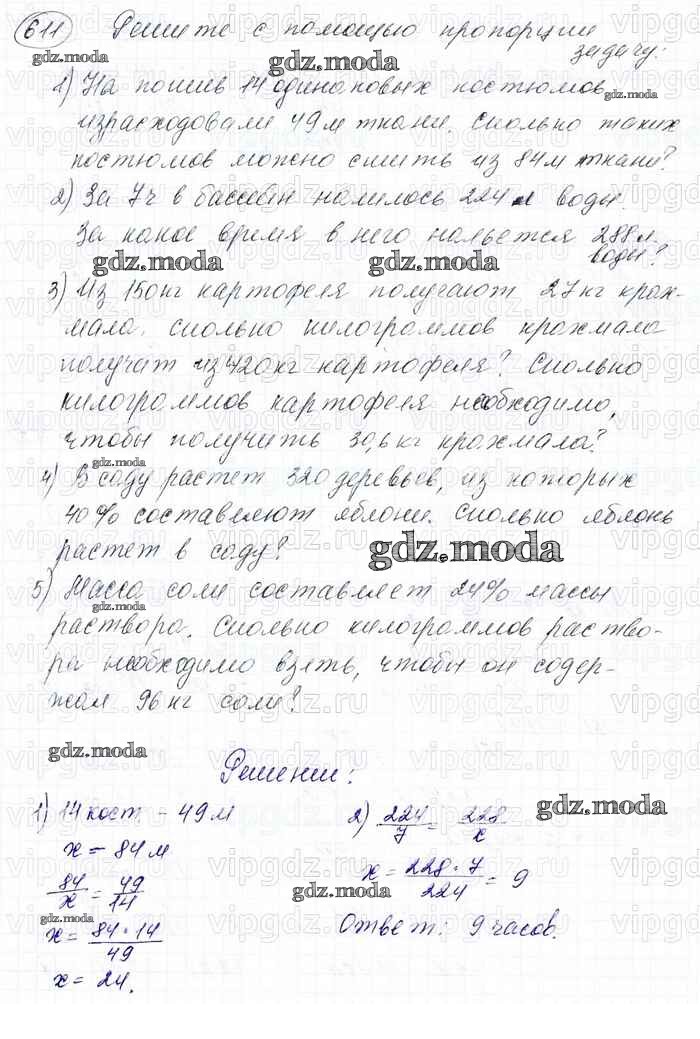 611 Решите с помощью пропорции
задачу:
1) На пошив 14 одинаковых костюмов
израсходовали 49 м ткани. Сколько таких
костюмов можно сшить из 84 м ткани?
2) За 7 ч в бассейн налилось 224 л воды.
За какое время в него нальется 288 л
воды?
3) Из 150 кг картофеля получают 27 кг крах-
мала. Сколько килограммов крахмала
получат из 420 кг картофеля? Сколько
килограммов картофеля необходимо,
чтобы получить 30,6 кг крахмала?
4) В саду растет 320 деревьев, из которых
40% составляют яблони. Сколько яблонь
растет в саду?
5) Масса соли составляет 24% массы
раствора. Сколько килограммов раство-
ра необходимо взять, чтобы он содер-
жал 96 кг соли?
Решение:
1) 14 кост. - 49 м
x - 84 м
84/x = 49/14
x = 84·14/49
x = 24.
2) 224/7 = 228/x
x = 228·7/224 = 9
Ответ: 9 часов.
gdz.moda
vipgdz.ru